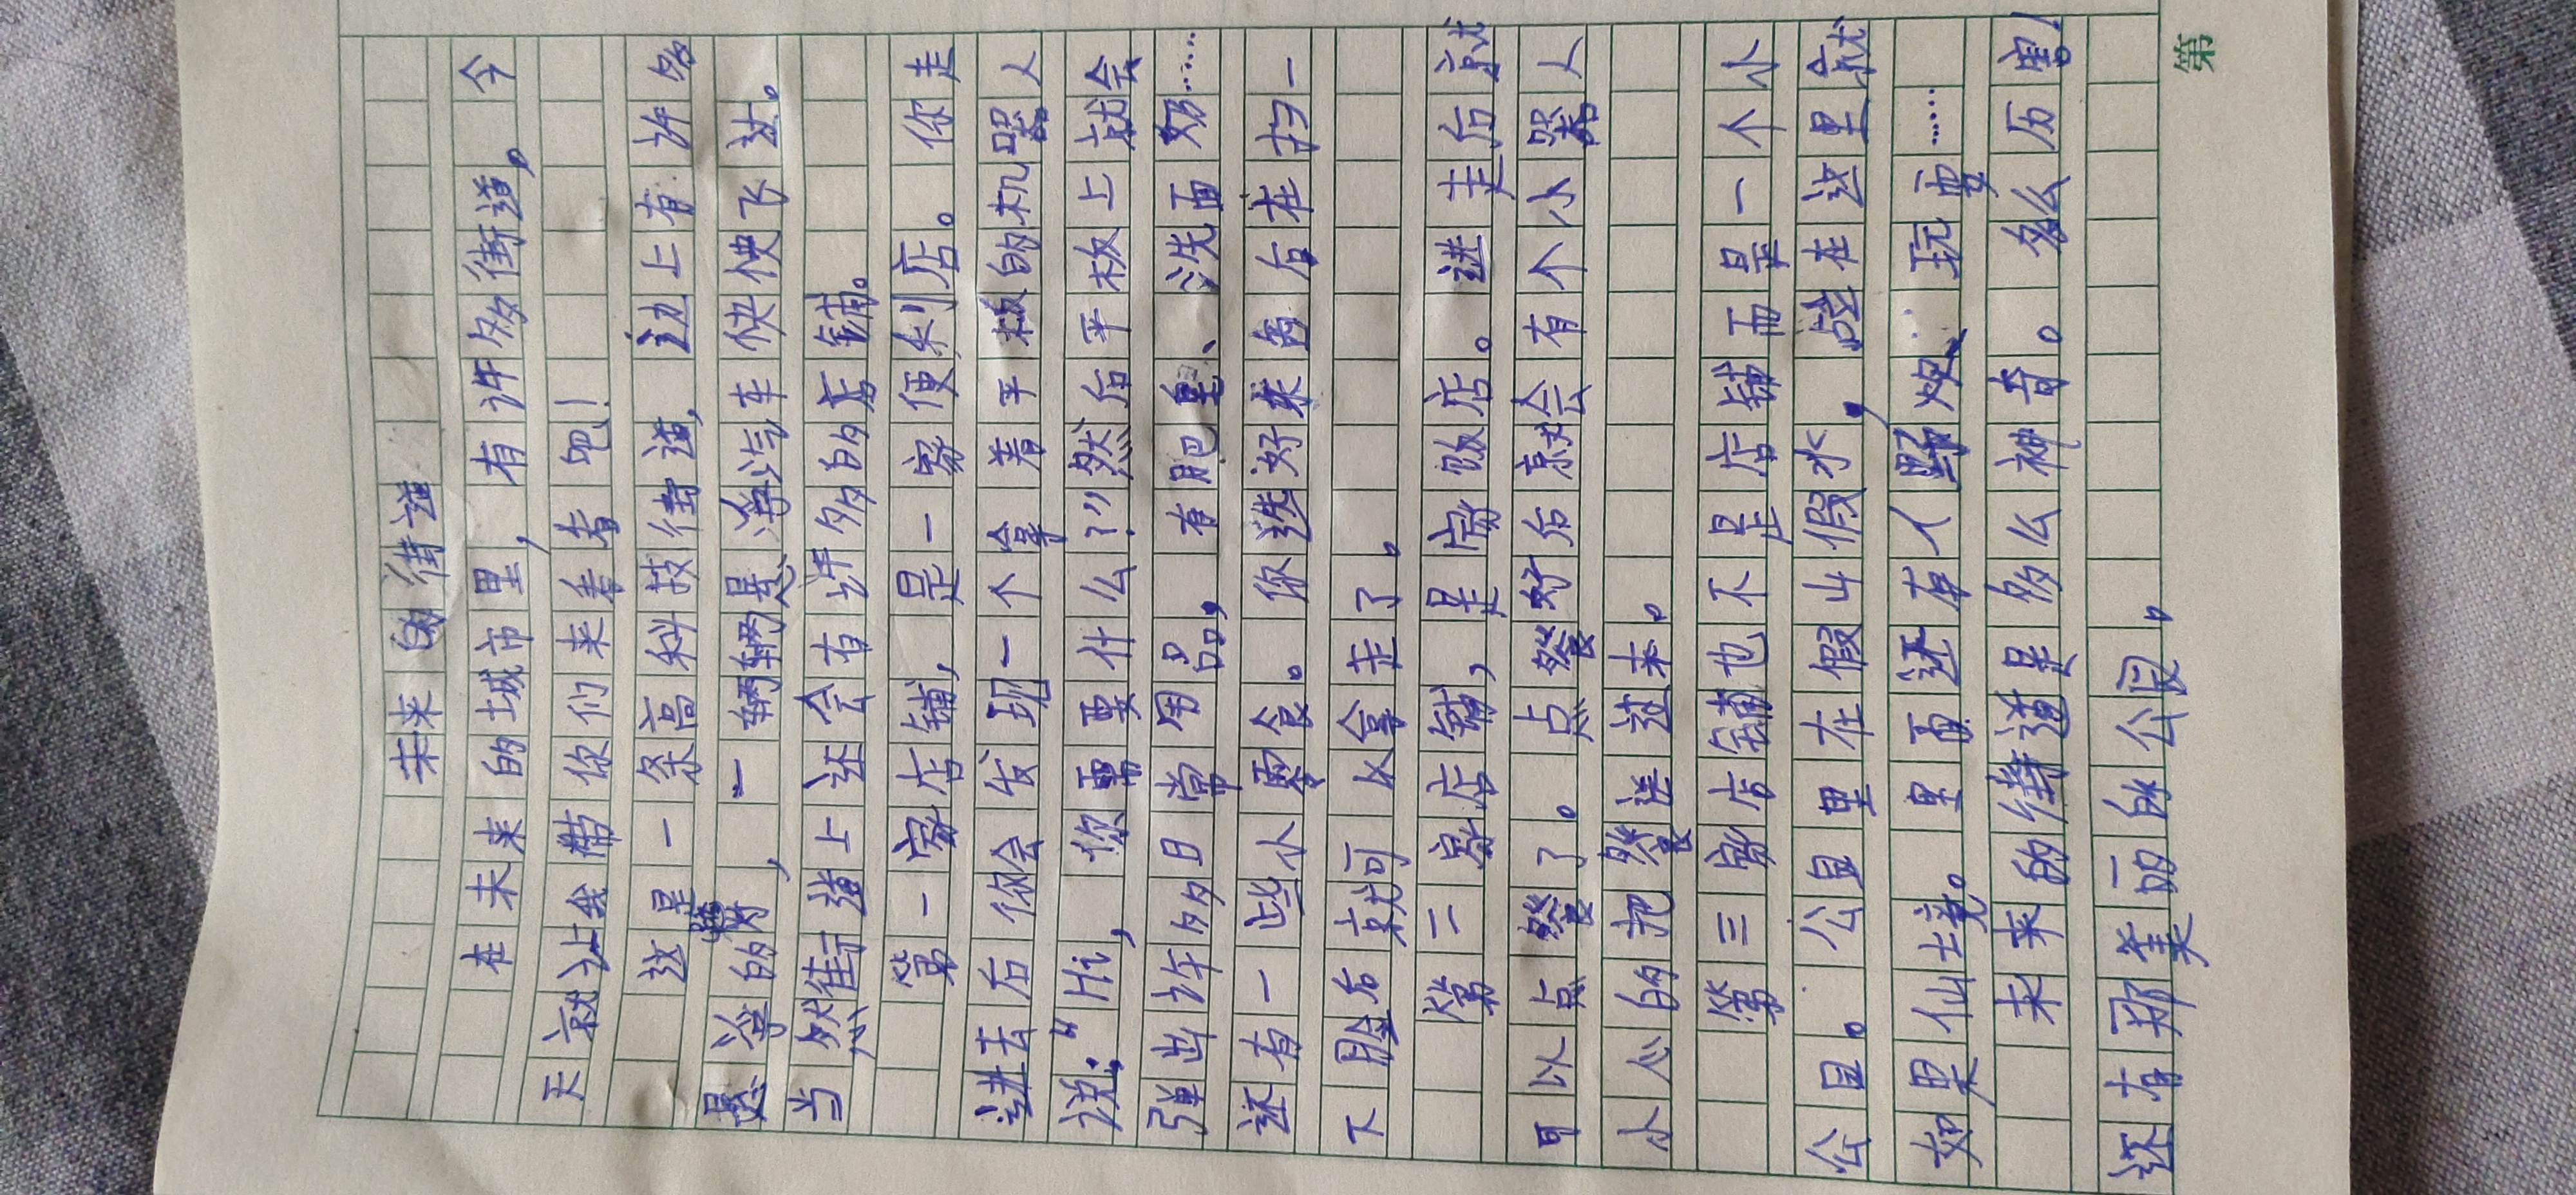 未来的街道
在未来的城市里，有许多街道，今
天就让我带你们来看看吧！
这是一条高科技街道，边上有许多
悬浮的树，一辆辆悬浮汽车快快飞过。
当然街道上还会有许多的店铺。
第一家店铺，是一家便利店。你走
进去后你会发现一个拿着平板的机器人
说：“Hi，你需要什么？”然后平板上就会
弹出许多日常用品，有肥皂、洗面奶……
还有一些小零食。你选好东西后在扫一
下脸后就可以拿走了。
第二家店铺，是家饭店。进走后就
可以点餐了。点餐好后就会有个小器人
小心的把餐送过来。
第三家店铺也不是店铺而是一个小
公园。公园里在假山假水，站在这里就
如果仙境。里面还有人野炊、玩耍……
未来的街道是多么神奇。多么厉害！
还有那美丽的公园。
第